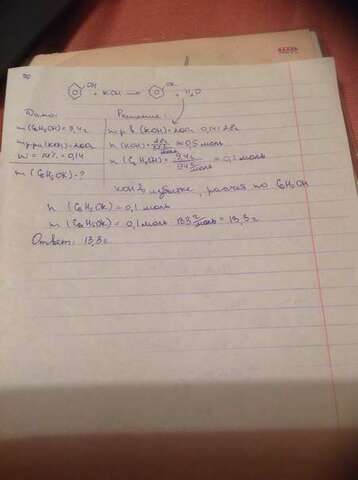 OH OK
+ KOH → + H₂O
Дано: Решение:
m(C₆H₅OH)=9,4г
m р-ра(KOH)=200г
W = 14% = 0,14
m (C₆H₅OK) - ?
m р.в (KOH)=200 · 0,14=28г
n (KOH)= ≈ 0,5 моль
n (C₆H₅OH)= 9,4г / 94 г/моль = 0,1 моль
KOH в избытке, расчет по C₆H₅OH
n (C₆H₅OK) = 0,1 моль
m (C₆H₅OK) = 0,1 моль · 133 г/моль = 13,3г
Ответ: 13,3г